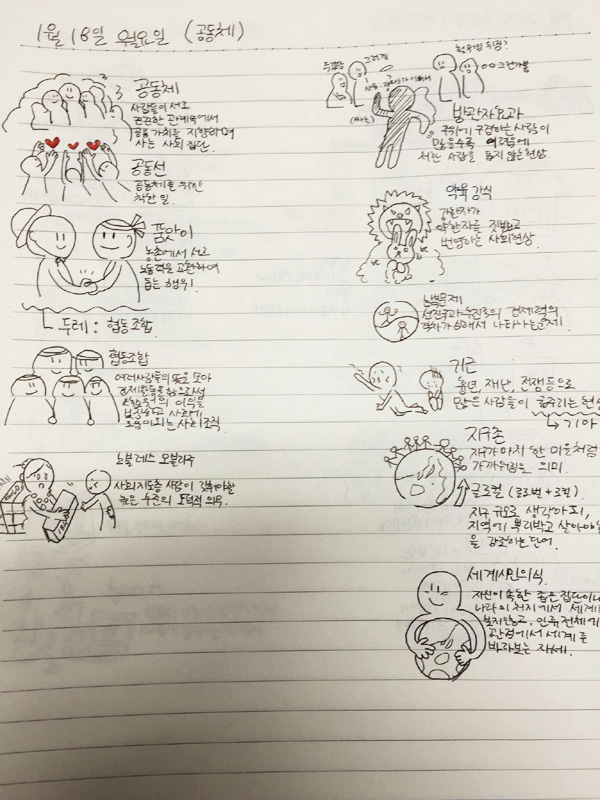 1월 18일 월요일 (공동체)
공동체
사람들이 서로
끈끈한 관계속에서
공동가치를 지향하며
사는 사회 집단.
공동선
공동체를 위한
착한 일.
품앗이
농촌에서 서로
노동력을 교환하여
돕는 행위.
두레 : 협동조합
협동조합
여러사람들의 뜻을 모아
경제활동을 함으로써
이익을
사회에
도움이되는 사회조직
노블레스 오블리주
사회지도층 사람이 갖춰야할
높은 수준의 도덕적 의무.
그러게
방관자효과
주위에 구경하는 사람이
많을수록 어려움에
처한 사람을 돕지 않는 현상
약육강식
강한자가
약한자를 짓밟고
번영하는 사회현상
남북문제
선진국과 후진국의 경제력의
격차가 심해서 나타나는 문제
기근
흉년, 재난, 전쟁등으로
많은 사람들이 굶주리는 현상
기아
지구촌
지구가 마치 한 마을처럼
가까워짐을 의미.
글로컬 (글로벌+로컬)
지구 규모로 생각하되,
지역에 뿌리박고 살아야
을 강조하는 단어.
세계시민의식
자신이 속한 좁은 집단이나
나라의 처지에서 세계를
보지않고, 인류 전체에
관점에서 세계를
바라보는 자세.